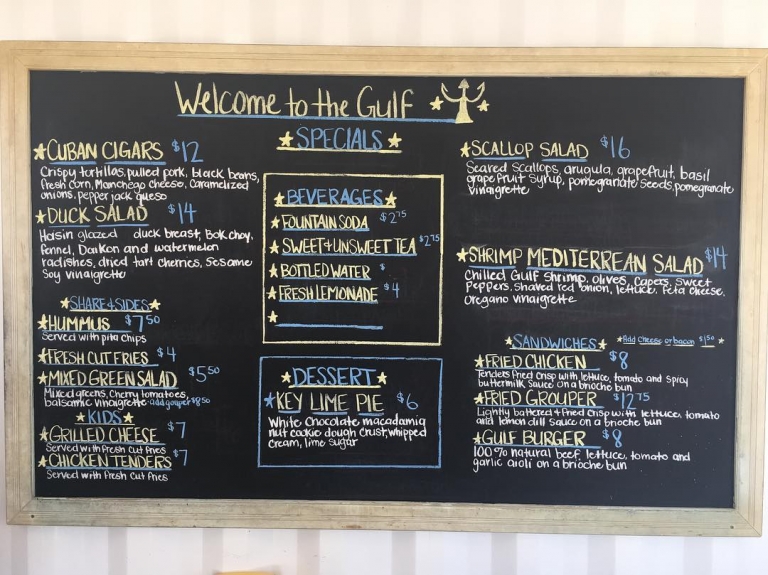 Welcome to the Gulf
SPECIALS
CUBAN CIGARS $12
Crispy tortillas, pulled pork, black beans,
fresh corn, Manchego cheese, Caramelized
onions, pepper jack queso
DUCK SALAD $14
Hoisin glazed duck breast, Bok choy,
fennel, Daikon and watermelon
radishes, dried tart cherries, Sesame
Soy vinaigrette
SHARE & SIDES
HUMMUS $7.50
Served with pita chips
FRESH CUT FRIES $4
MIXED GREEN SALAD $5.50
Mixed greens, Cherry tomatoes,
balsamic vinaigrette add grouper $8.50
KIDS
GRILLED CHEESE $7
Served with Fresh Cut fries
CHICKEN TENDERS $7
Served with Fresh Cut fries
BEVERAGES
FOUNTAIN SODA $2.75
SWEET & UNSWEET TEA $2.75
BOTTLED WATER $
FRESH LEMONADE $4
DESSERT
KEY LIME PIE $6
White Chocolate macadamia
nut cookie dough crust, whipped
cream, lime sugar
SCALLOP SALAD $16
Seared Scallops, arugula, grapefruit, basil
grapefruit syrup, pomegranate seeds, pomegranate
vinaigrette
SHRIMP MEDITERREAN SALAD $14
Chilled Gulf Shrimp, olives, Capers, Sweet
Peppers, Shaved red onion, lettuce, Feta cheese,
Oregano vinaigrette
SANDWICHES Add Cheese or bacon $1.50
FRIED CHICKEN $8
Tenders fried Crisp with lettuce, tomato and spicy
buttermilk Sauce on a brioche bun
FRIED GROUPER $12.75
Lightly battered & fried Crisp with lettuce, tomato
and lemon dill sauce on a brioche bun
GULF BURGER $8
100% natural beef, lettuce, tomato and
garlic aioli on a brioche bun